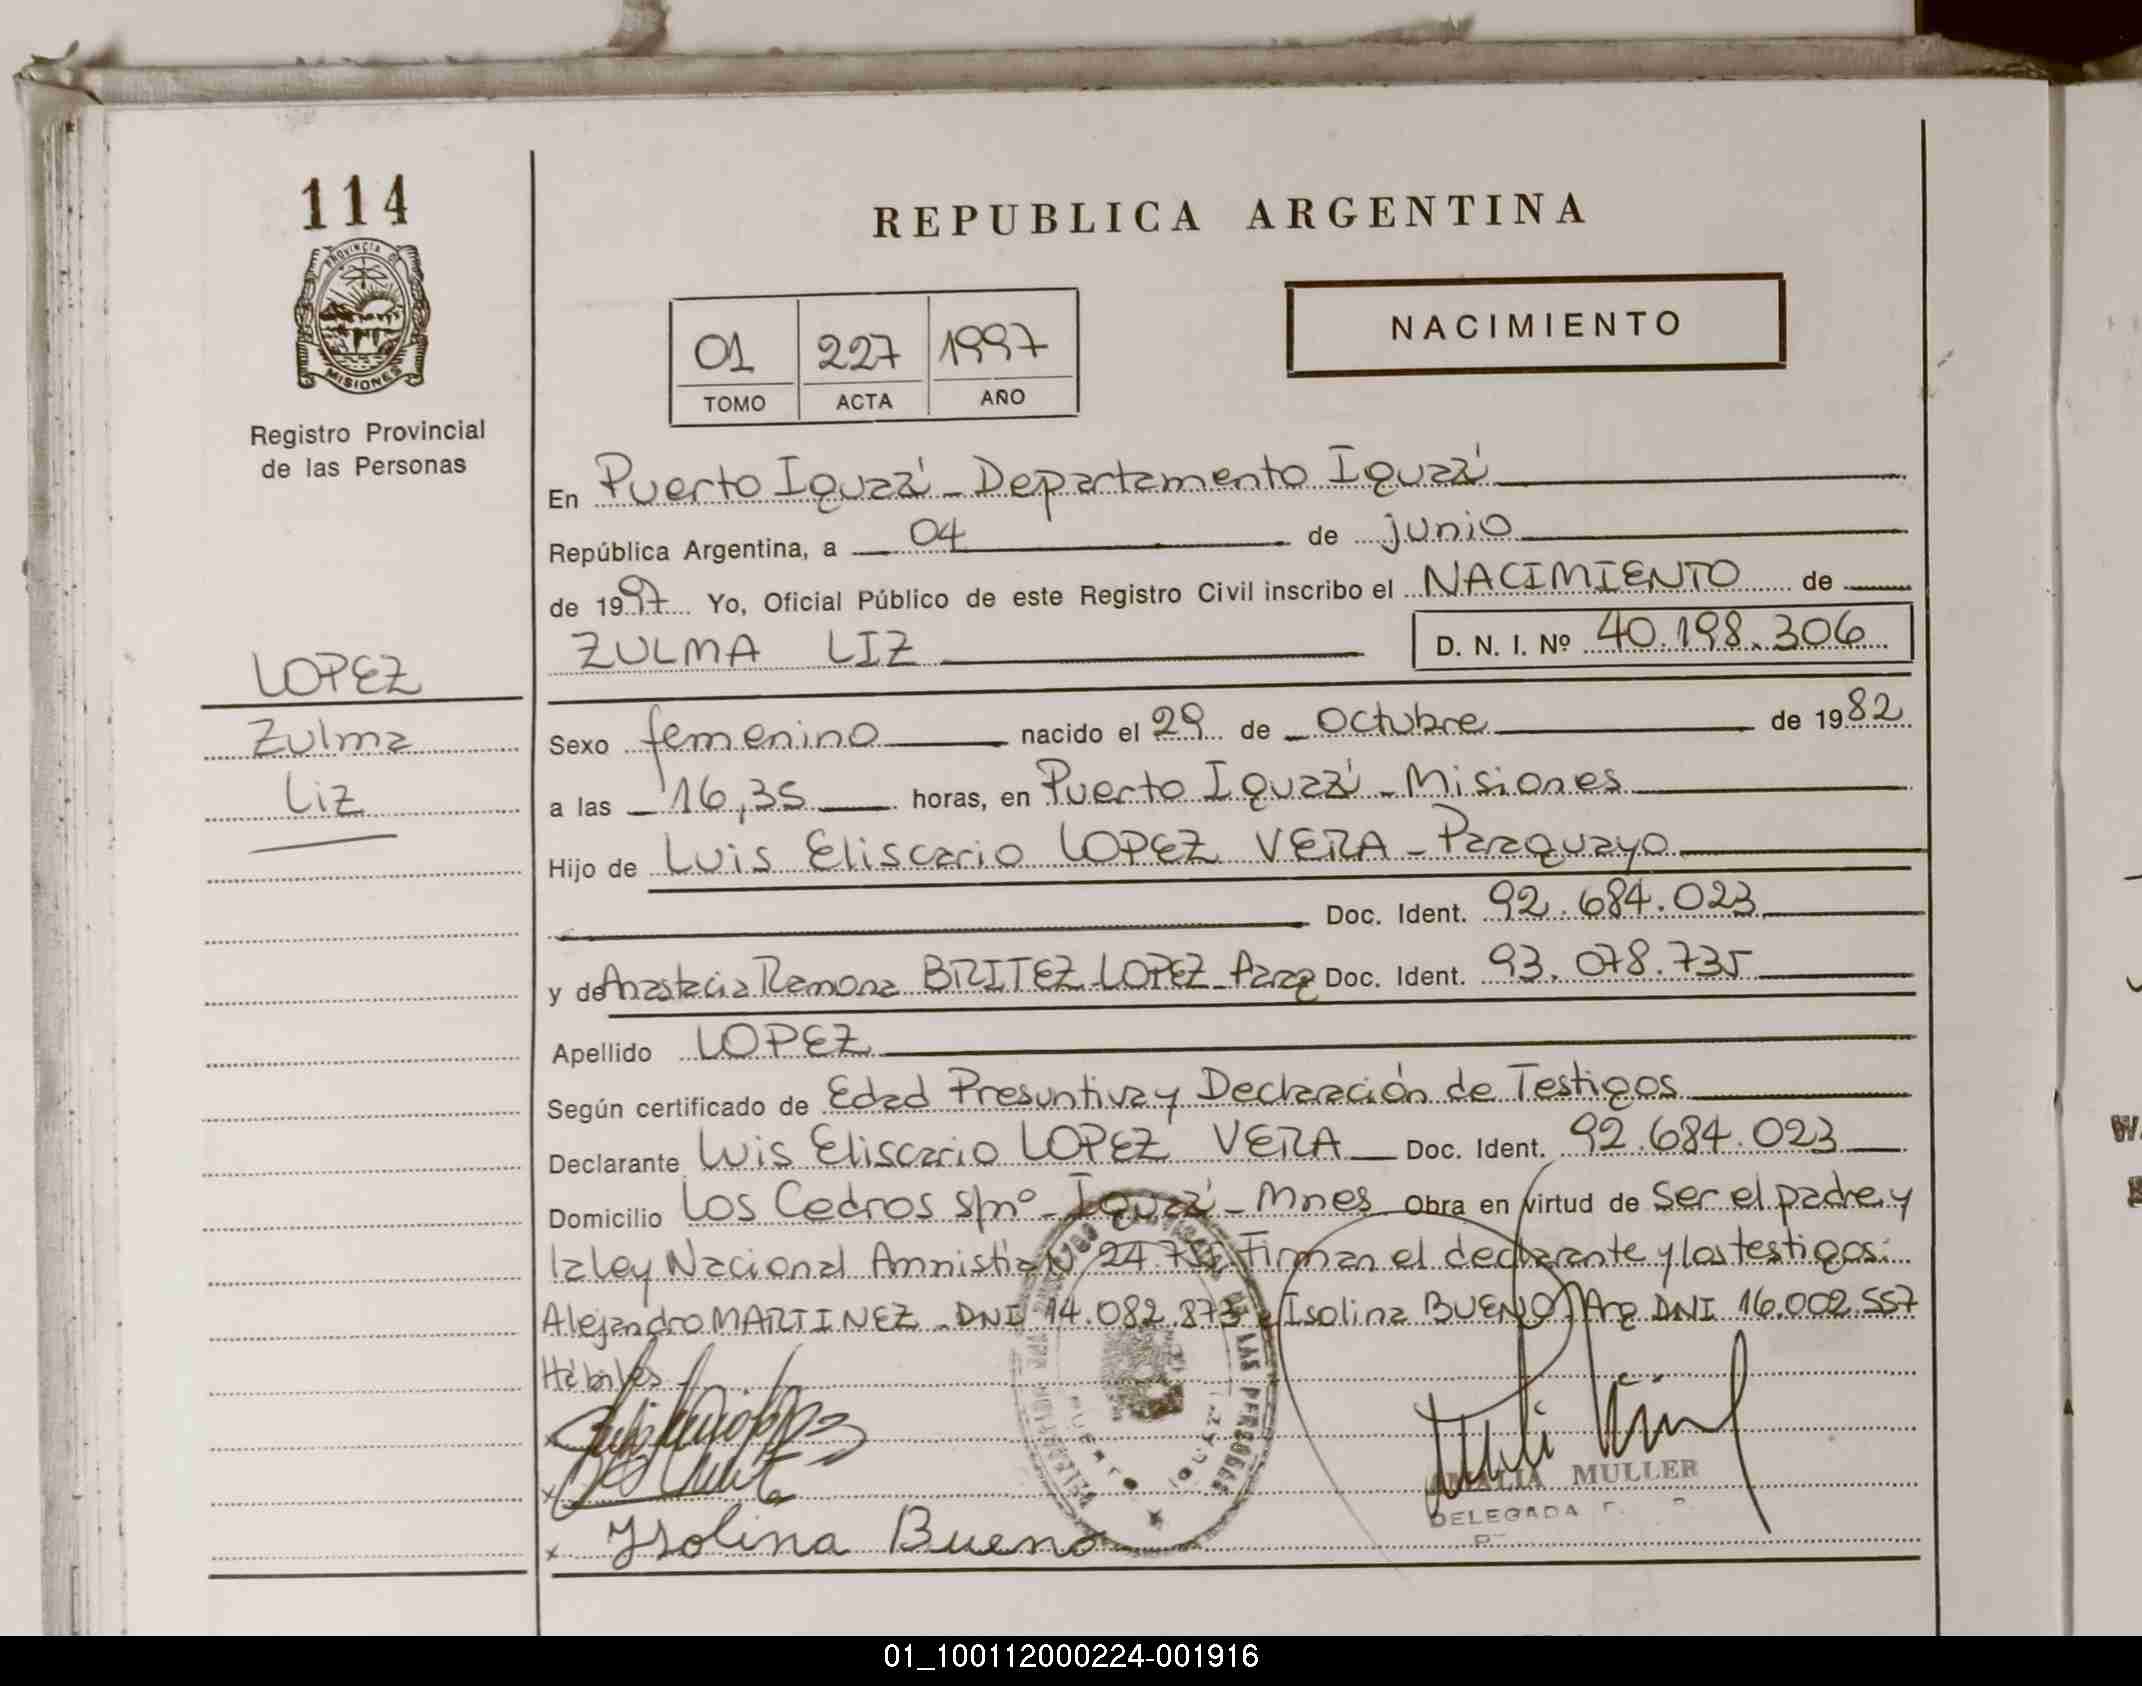 114
PROVINCIA DE
MISIONES
Registro Provincial
de las Personas
LOPEZ
Zulma
Liz
REPUBLICA ARGENTINA
01 227 1997
TOMO ACTA AÑO
NACIMIENTO
En Puerto Iguazú - Departamento Iguazú
República Argentina, a 04 de junio
de 1997 Yo, Oficial Público de este Registro Civil inscribo el NACIMIENTO de
ZULMA LIZ D. N. I. Nº 40.198.306
Sexo femenino nacido el 29 de Octubre de 1982
a las 16,35 horas, en Puerto Iguazú - Misiones
Hijo de Luis Eliscario LOPEZ VERA - Paraguayo
Doc. Ident. 92.684.023
y de Anastacia Ramona BRITEZ LOPEZ - Parag Doc. Ident. 93.078.735
Apellido LOPEZ
Según certificado de Edad Presuntiva y Declaración de Testigos
Declarante Luis Eliscario LOPEZ VERA Doc. Ident. 92.684.023
Domicilio Los Cedros s/nº - Iguazú - Mnes Obra en virtud de Ser el padre y
la ley Nacional Amnistía Nº 24.755 Firman el declarante y los testigos:
Alejandro MARTINEZ - DNI 14.082.873 e Isolina BUENO Arg DNI 16.002.557
Hábiles -
LAS PERSONAS
PUERTO IGUAZU
AMALIA MULLER
DELEGADA
x Isolina Bueno
01_100112000224-001916